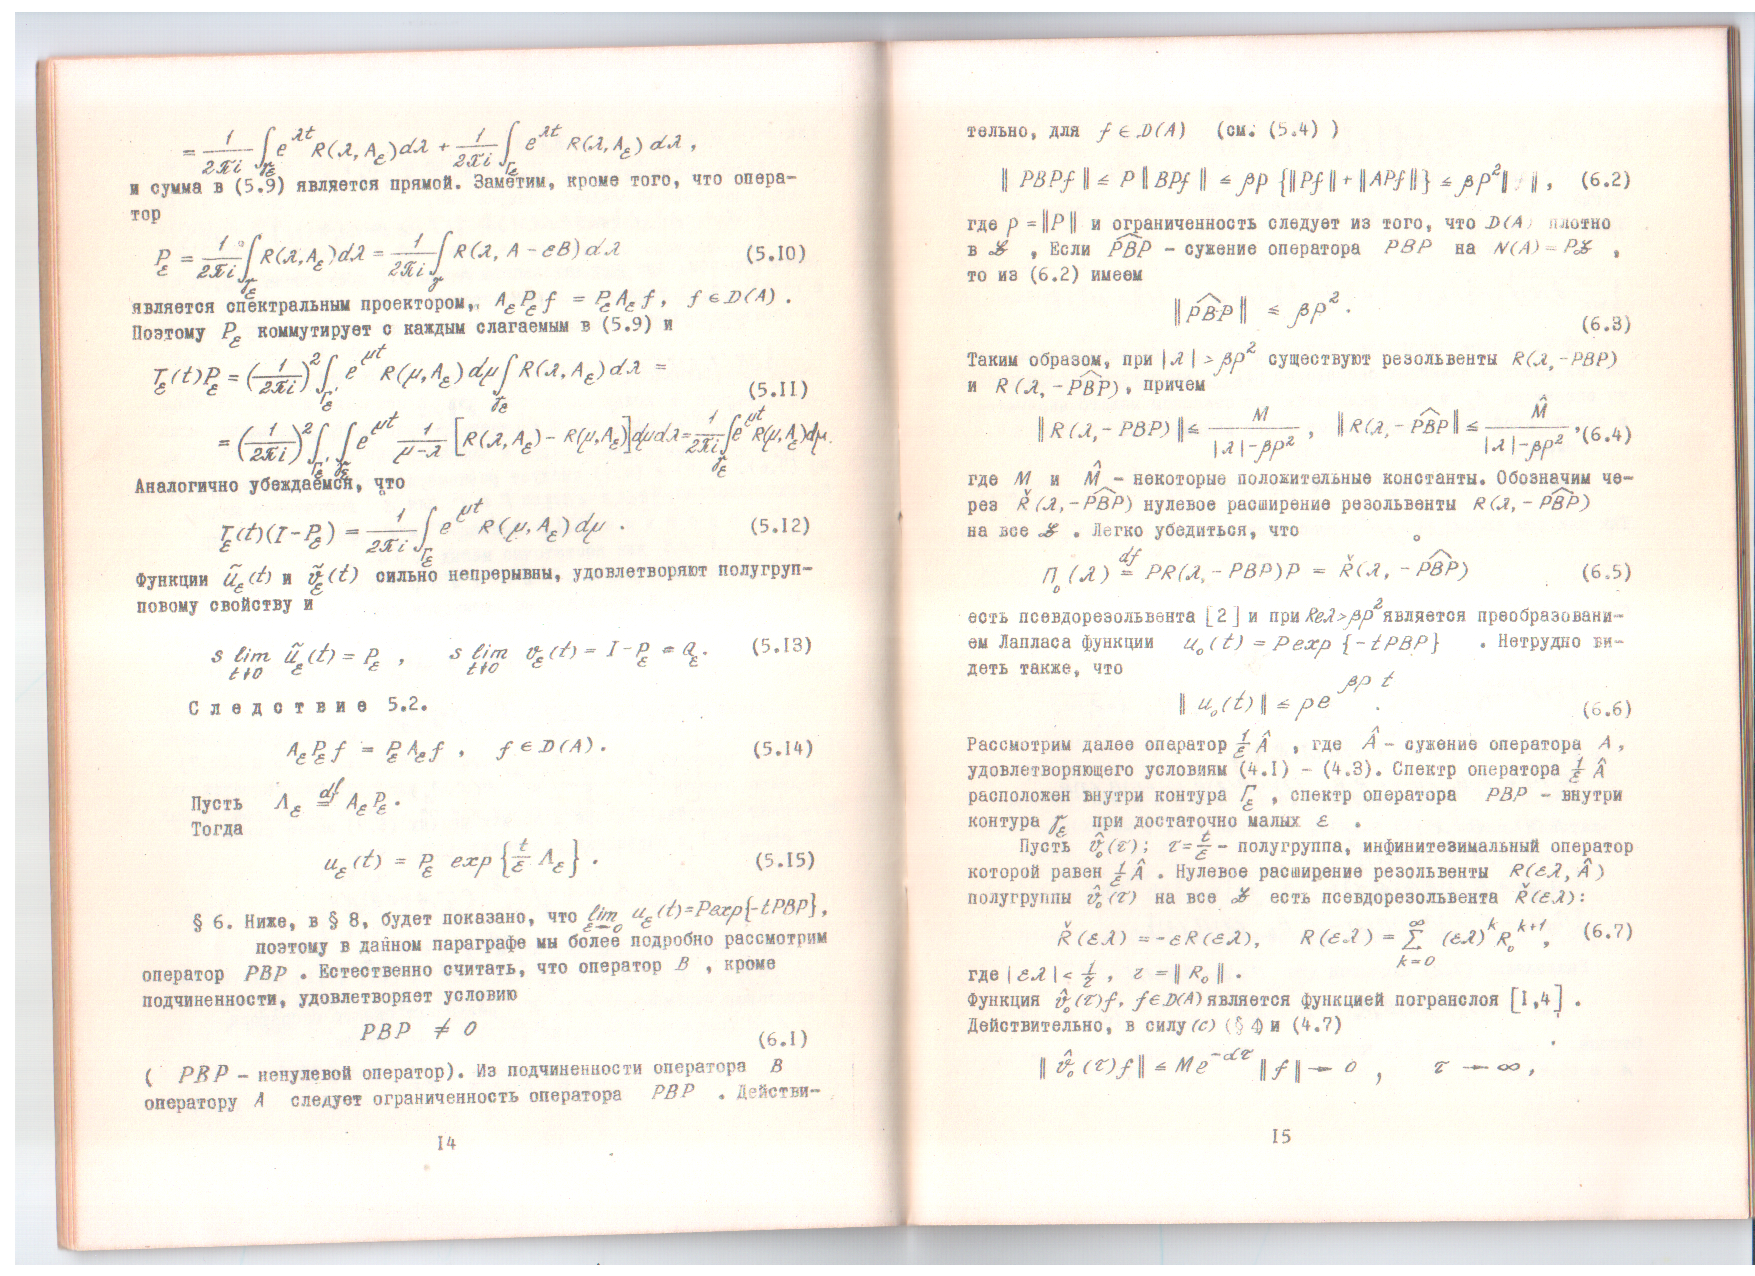 = 1/2πi ∫_{γ_ε} e^{λt} R(λ, A_ε)dλ + 1/2πi ∫_{Γ_ε} e^{λt} R(λ, A_ε) dλ ,
и сумма в (5.9) является прямой. Заметим, кроме того, что опера-
тор
P_ε = 1/2πi ∫_{γ_ε} R(λ, A_ε)dλ = 1/2πi ∫_γ R(λ, A − εB) dλ (5.10)
является спектральным проектором, A_ε P_ε f = P_ε A_ε f, f ∈ D(A) .
Поэтому P_ε коммутирует с каждым слагаемым в (5.9) и
T_ε(t)P_ε = (1/2πi)² ∫_{Γ'_ε} e^{μt} R(μ, A_ε) dμ ∫_{γ_ε} R(λ, A_ε) dλ =
(5.11)
= (1/2πi)² ∫_{Γ'_ε} ∫_{γ_ε} e^{μt} 1/(μ-λ) [R(λ, A_ε) − R(μ, A_ε)]dμdλ = 1/2πi ∫_{γ_ε} e^{μt} R(μ, A_ε)dμ.
Аналогично убеждаемся, что
T_ε(t)(I − P_ε) = 1/2πi ∫_{Γ_ε} e^{μt} R(μ, A_ε) dμ . (5.12)
Функции ũ_ε(t) и ṽ_ε(t) сильно непрерывны, удовлетворяют полугруп-
повому свойству и
s lim_{t↓0} ũ_ε(t) = P_ε , s lim_{t↓0} v_ε(t) = I − P_ε = Q_ε. (5.13)
Следствие 5.2.
A_ε P_ε f = P_ε A_ε f , f ∈ D(A). (5.14)
Пусть Λ_ε =^{df} A_ε P_ε.
Тогда
u_ε(t) = P_ε exp {t/ε Λ_ε} . (5.15)
§ 6. Ниже, в § 8, будет показано, что lim_{ε→0} u_ε(t) = P exp{−tPBP},
поэтому в данном параграфе мы более подробно рассмотрим
оператор PBP . Естественно считать, что оператор B , кроме
подчиненности, удовлетворяет условию
PBP ≠ 0 (6.1)
( PBP – ненулевой оператор). Из подчиненности оператора B
оператору A следует ограниченность оператора PBP . Действи-
14
тельно, для f ∈ D(A) (см. (5.4) )
‖ PBPf ‖ ≤ P ‖ BPf ‖ ≤ βp {‖Pf‖ + ‖APf‖} ≤ βp²‖ ‖ , (6.2)
где p = ‖P‖ и ограниченность следует из того, что D(A) плотно
в ℒ , Если P͡BP – сужение оператора PBP на N(A) = Pℒ ,
то из (6.2) имеем
‖P͡BP‖ ≤ βp² .
(6.3)
Таким образом, при |λ| > βp² существуют резольвенты R(λ, −PBP)
и R(λ, −P͡BP), причем
‖R(λ, − PBP)‖ ≤ M/(|λ|−βp²) , ‖R(λ, − P͡BP‖ ≤ M̂/(|λ|−βp²) , (6.4)
где M и M̂ – некоторые положительные константы. Обозначим че-
рез Ř(λ, −P͡BP) нулевое расширение резольвенты R(λ, − P͡BP)
на все ℒ . Легко убедиться, что
Π_o(λ) =^{df} PR(λ, − PBP)P = Ř(λ, − P͡BP) (6.5)
есть псевдорезольвента [2] и при Reλ > βp² является преобразовани-
ем Лапласа функции u_o(t) = P exp {−tPBP} . Нетрудно ви-
деть также, что
‖ u_o(t) ‖ ≤ pe^{βp t} . (6.6)
Рассмотрим далее опаратор 1/ε Â , где Â – сужение оператора A ,
удовлетворяющего условиям (4.1) – (4.3). Спектр оператора 1/ε Â
расположен внутри контура Γ_ε , спектр оператора PBP – внутри
контура γ_ε при достаточно малых ε .
Пусть v̂_o(τ); τ = t/ε – полугруппа, инфинитезимальный оператор
которой равен 1/ε Â . Нулевое расширение резольвенты R(ελ, Â)
полугруппы v̂_o(τ) на все ℒ есть псевдорезольвента Ř(ελ):
Ř(ελ) = −εR(ελ), R(ελ) = ∑_{k=0}^{∞} (ελ)^k R_o^{k+1}, (6.7)
где |ελ| < 1/r , r = ‖ R_o ‖ .
Функция v̂_o(τ)f, f∈D(A) является функцией погранслоя [1,4] .
Действительно, в силу (c) (§ 4) и (4.7)
‖ v̂_o(τ)f ‖ ≤ Me^{−ατ} ‖f‖ → 0 , τ → ∞ ,
15